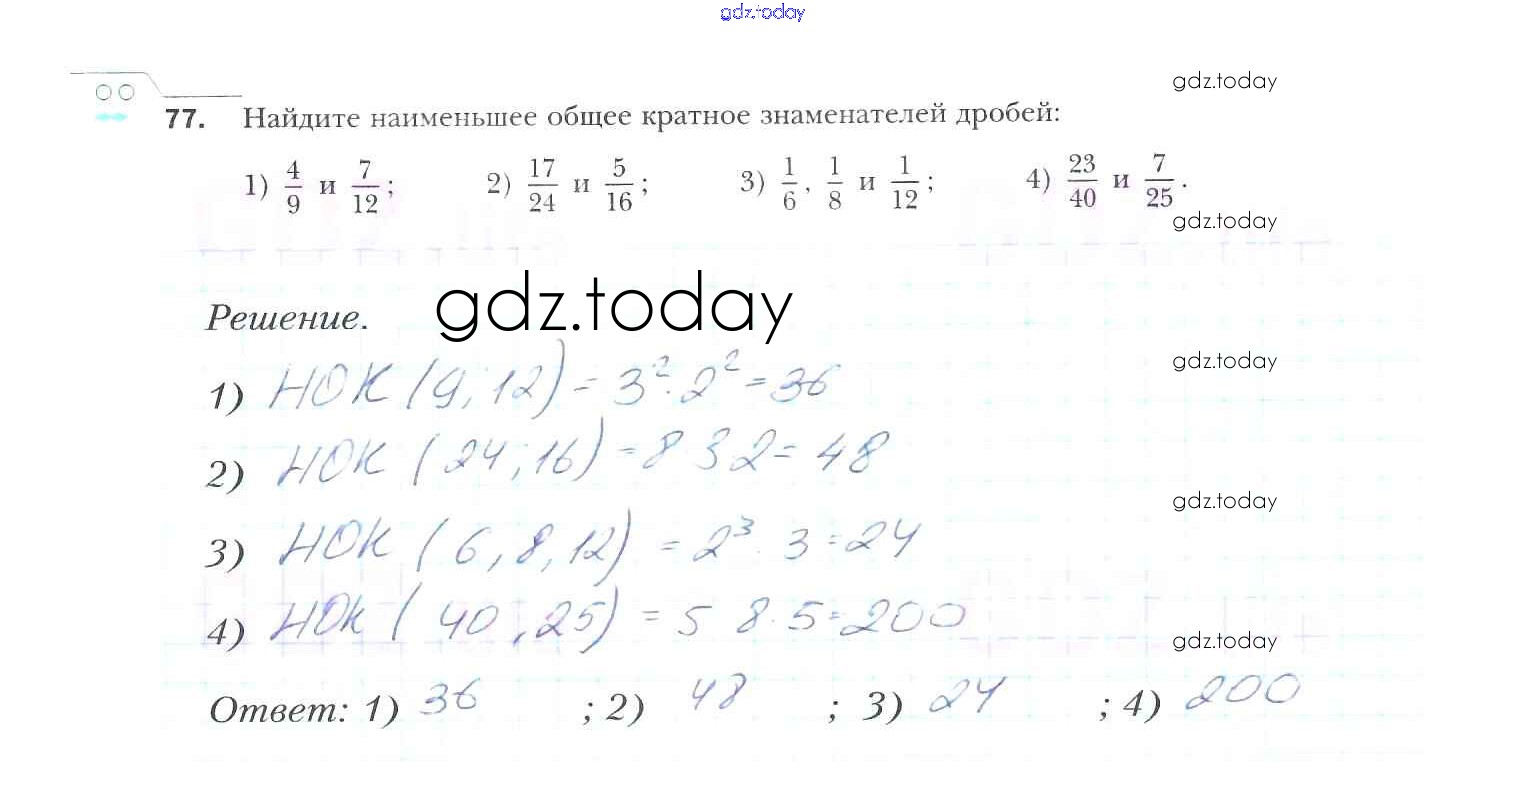 gdz.today
gdz.today
77. Найдите наименьшее общее кратное знаменателей дробей:
1) 4/9 и 7/12; 2) 17/24 и 5/16; 3) 1/6, 1/8 и 1/12; 4) 23/40 и 7/25.
gdz.today
Решение.
gdz.today
gdz.today
1) НОК (9, 12) = 3² · 2² = 36
2) НОК (24; 16) = 8 3 2 = 48
gdz.today
3) НОК (6, 8, 12) = 2³ · 3 = 24
4) НОК (40, 25) = 5 8 · 5 = 200
gdz.today
Ответ: 1) 36 ; 2) 48 ; 3) 24 ; 4) 200